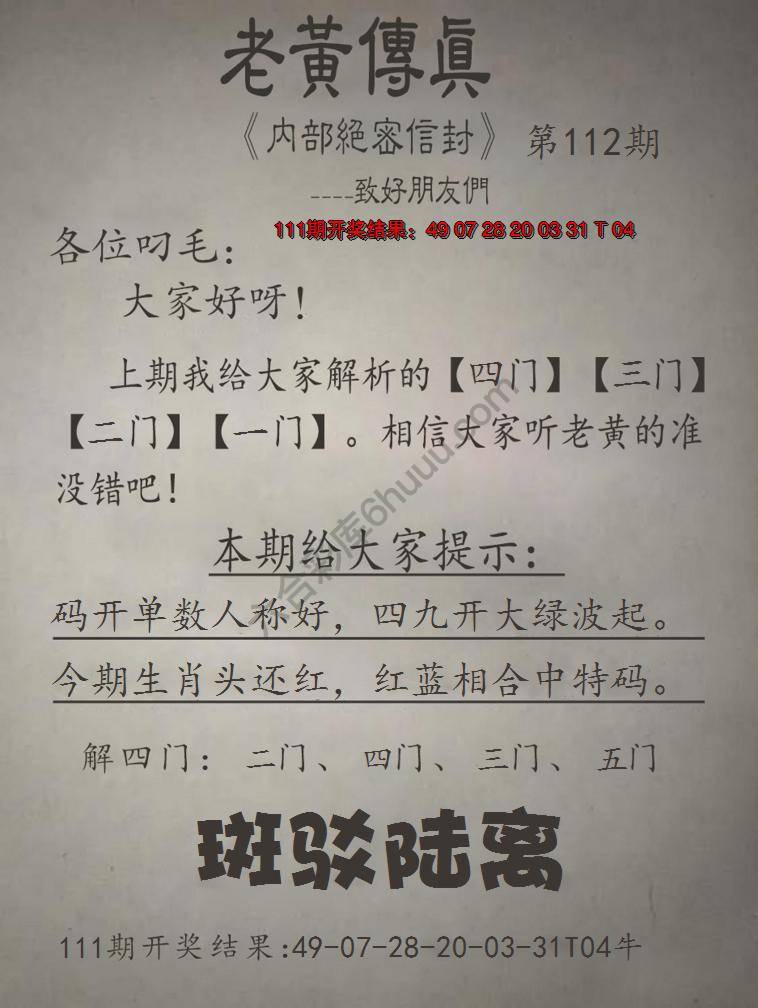 老黃傳真
《内部絕密信封》 第112期
----致好朋友們
111期开奖结果：49 07 28 20 03 31 T 04
各位叼毛：
大家好呀！
上期我给大家解析的【四门】【三门】
【二门】【一门】。相信大家听老黄的准
没错吧！
六合彩库6huuu.com
本期给大家提示：
码开单数人称好，四九开大绿波起。
今期生肖头还红，红蓝相合中特码。
解四门：二门、四门、三门、五门
斑驳陆离
111期开奖结果:49-07-28-20-03-31T04牛